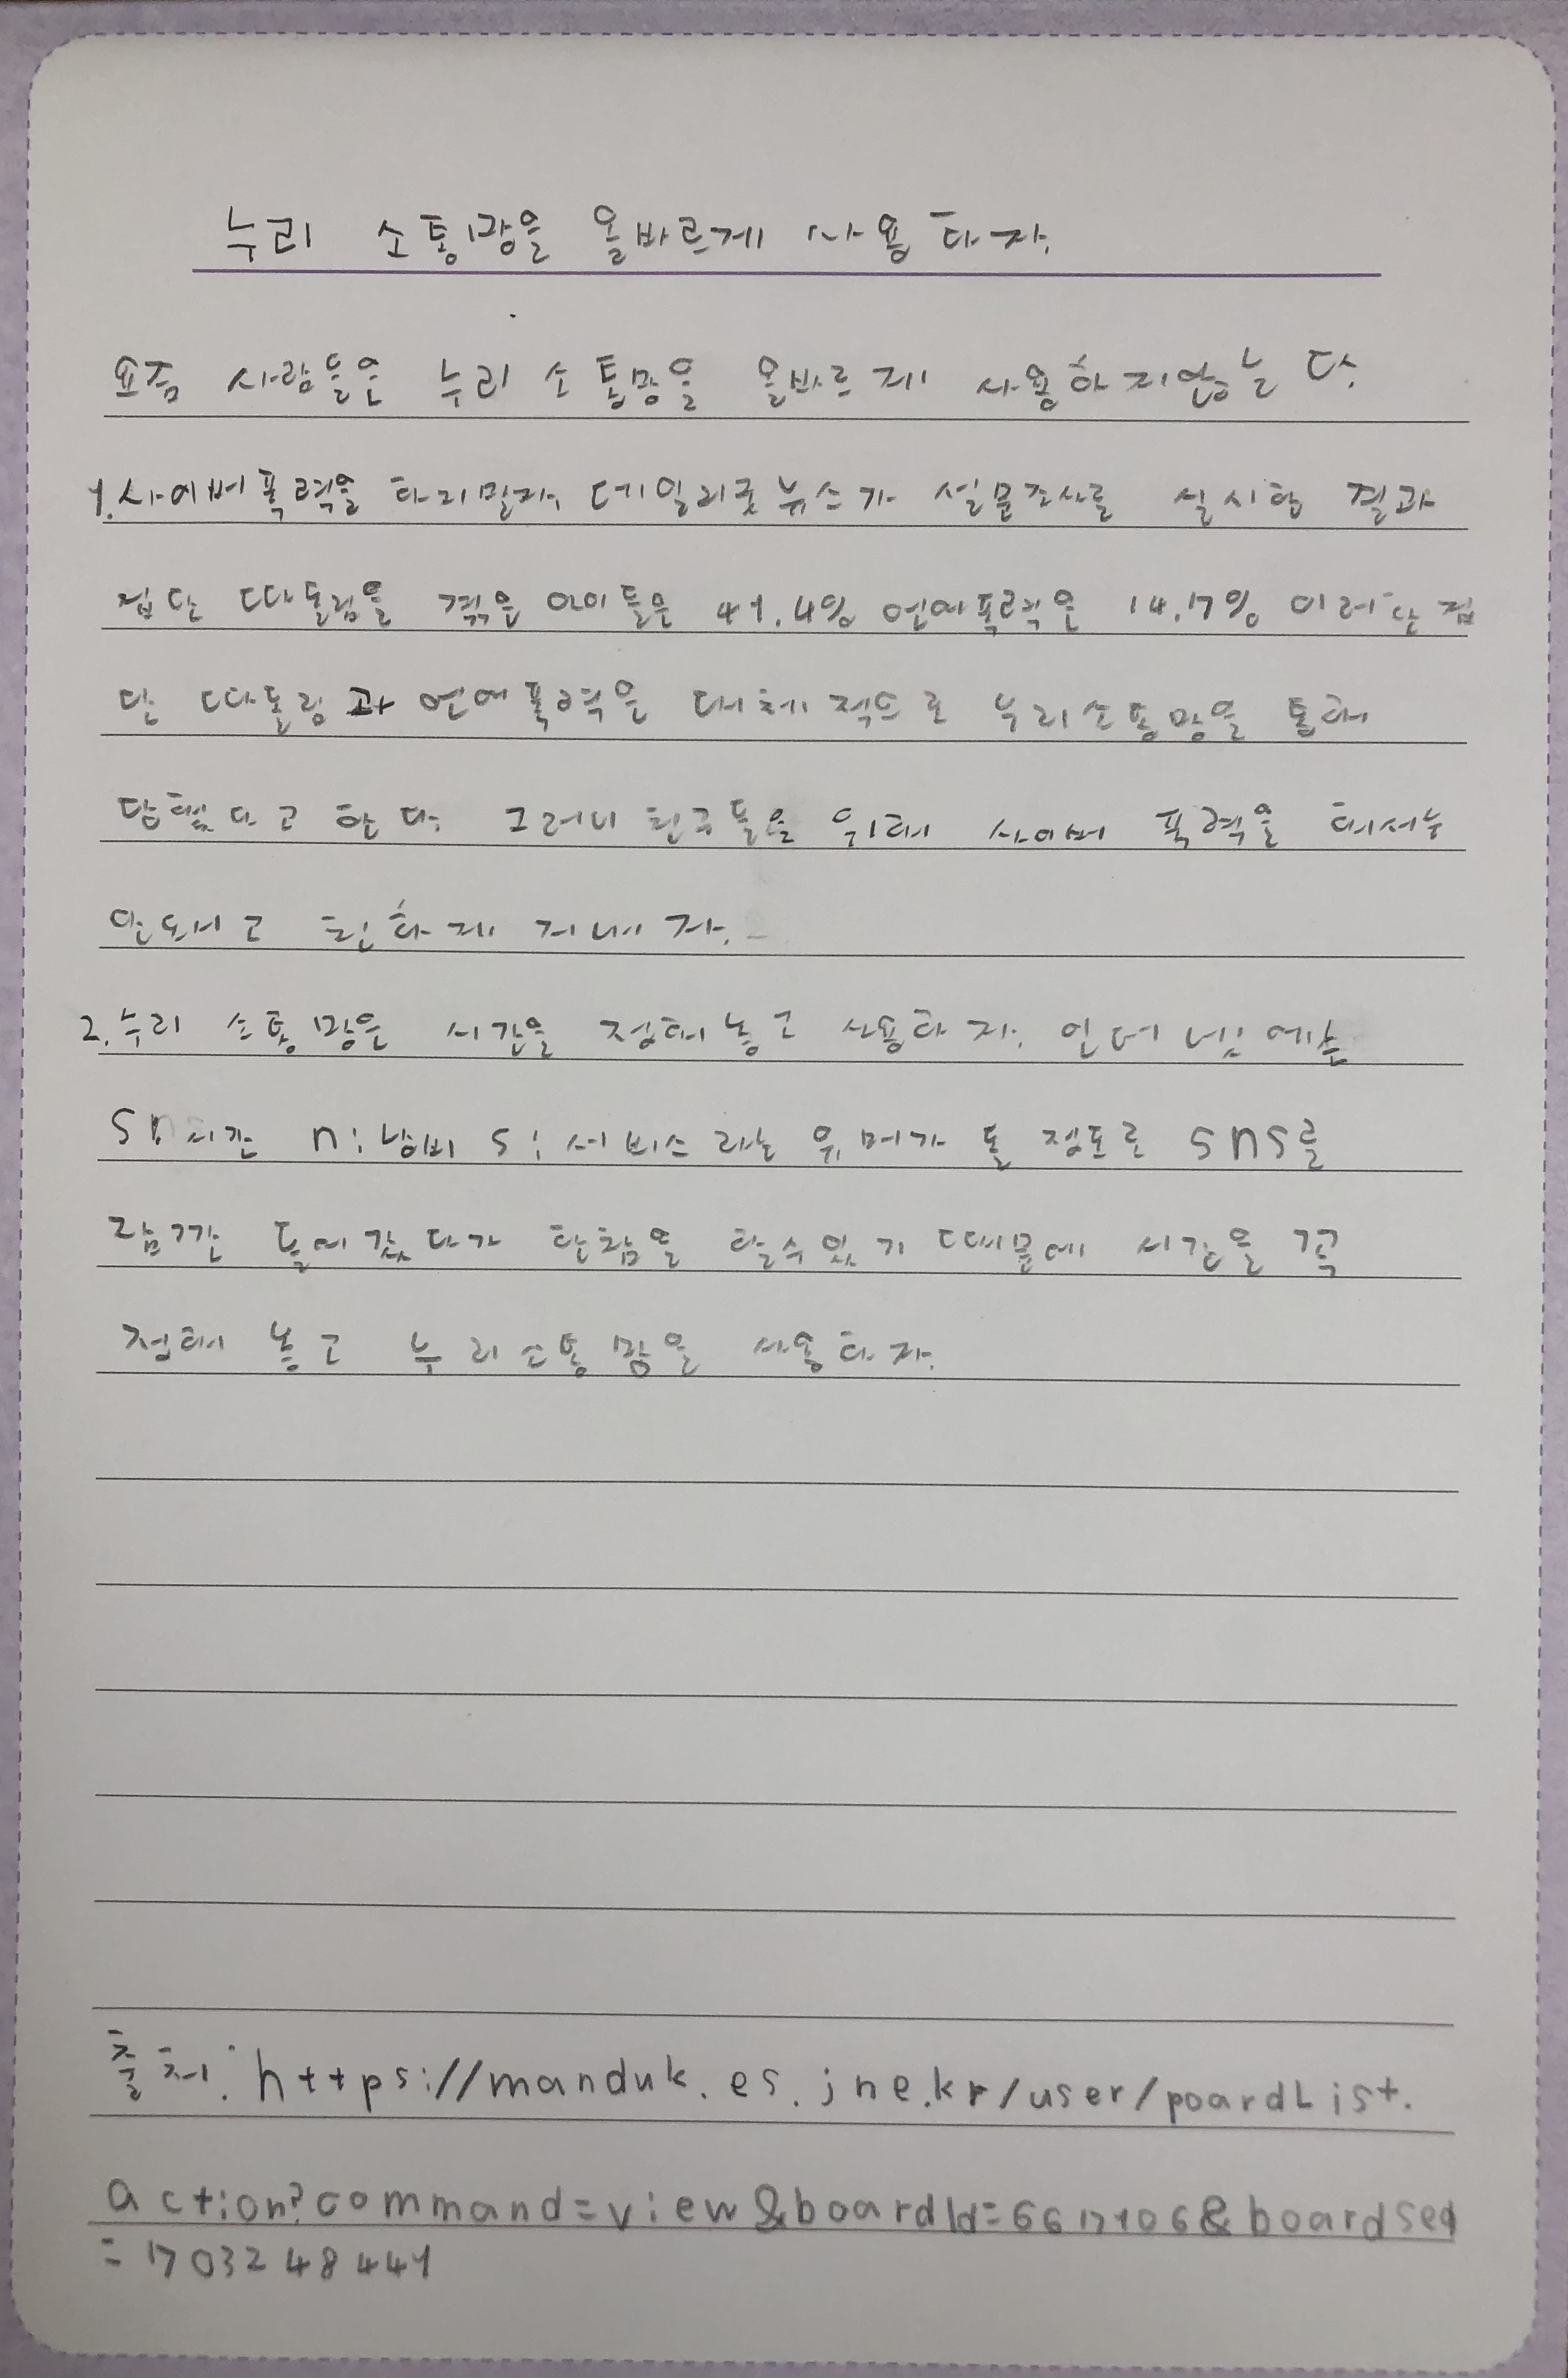 누리 소통망을 올바르게 사용하자.
요즘 사람들은 누리 소통망을 올바르게 사용하지않는다.
1. 사이버폭력을 하지말자. 데일리굿뉴스가 설문조사를 실시한 결과
집단 따돌림을 겪은 아이들은 41.4% 언어폭력은 14.7% 이러한 집
단 따돌림과 언어폭력은 대체적으로 누리소통망을 통해
당했다고 한다. 그러니 친구들을 위해 사이버 폭력을 해서는
안되고 친하게 지내자.
2. 누리 소통망은 시간을 정해놓고 사용하자. 인터넷에는
S:시간 n:낭비 S:서비스라는 유머가 돌 정도로 SNS를
잠깐 들어갔다가 한참을 할수있기 때문에 시간을 꼭
정해 놓고 누리소통망을 사용하자.
출처: https://manduk.es.jne.kr/user/poardList.
action?command=view&boardId=6617106&boardSeq
=1703248441